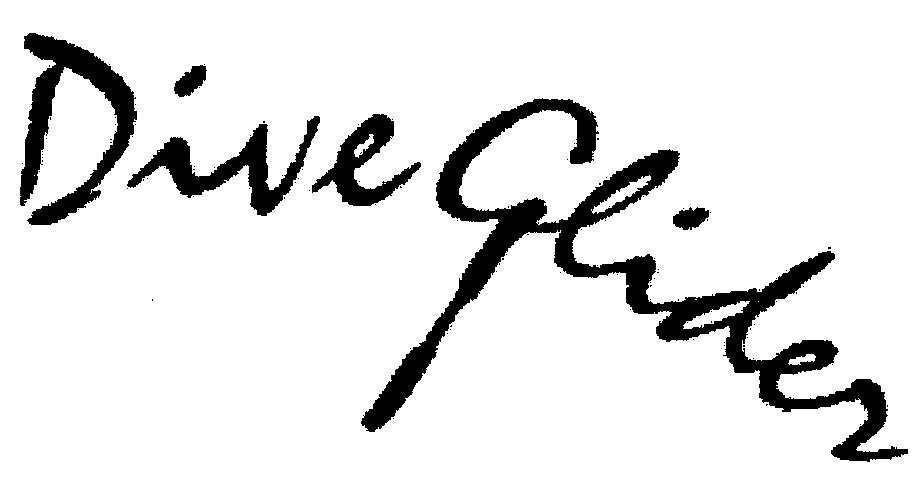 Dive Glider